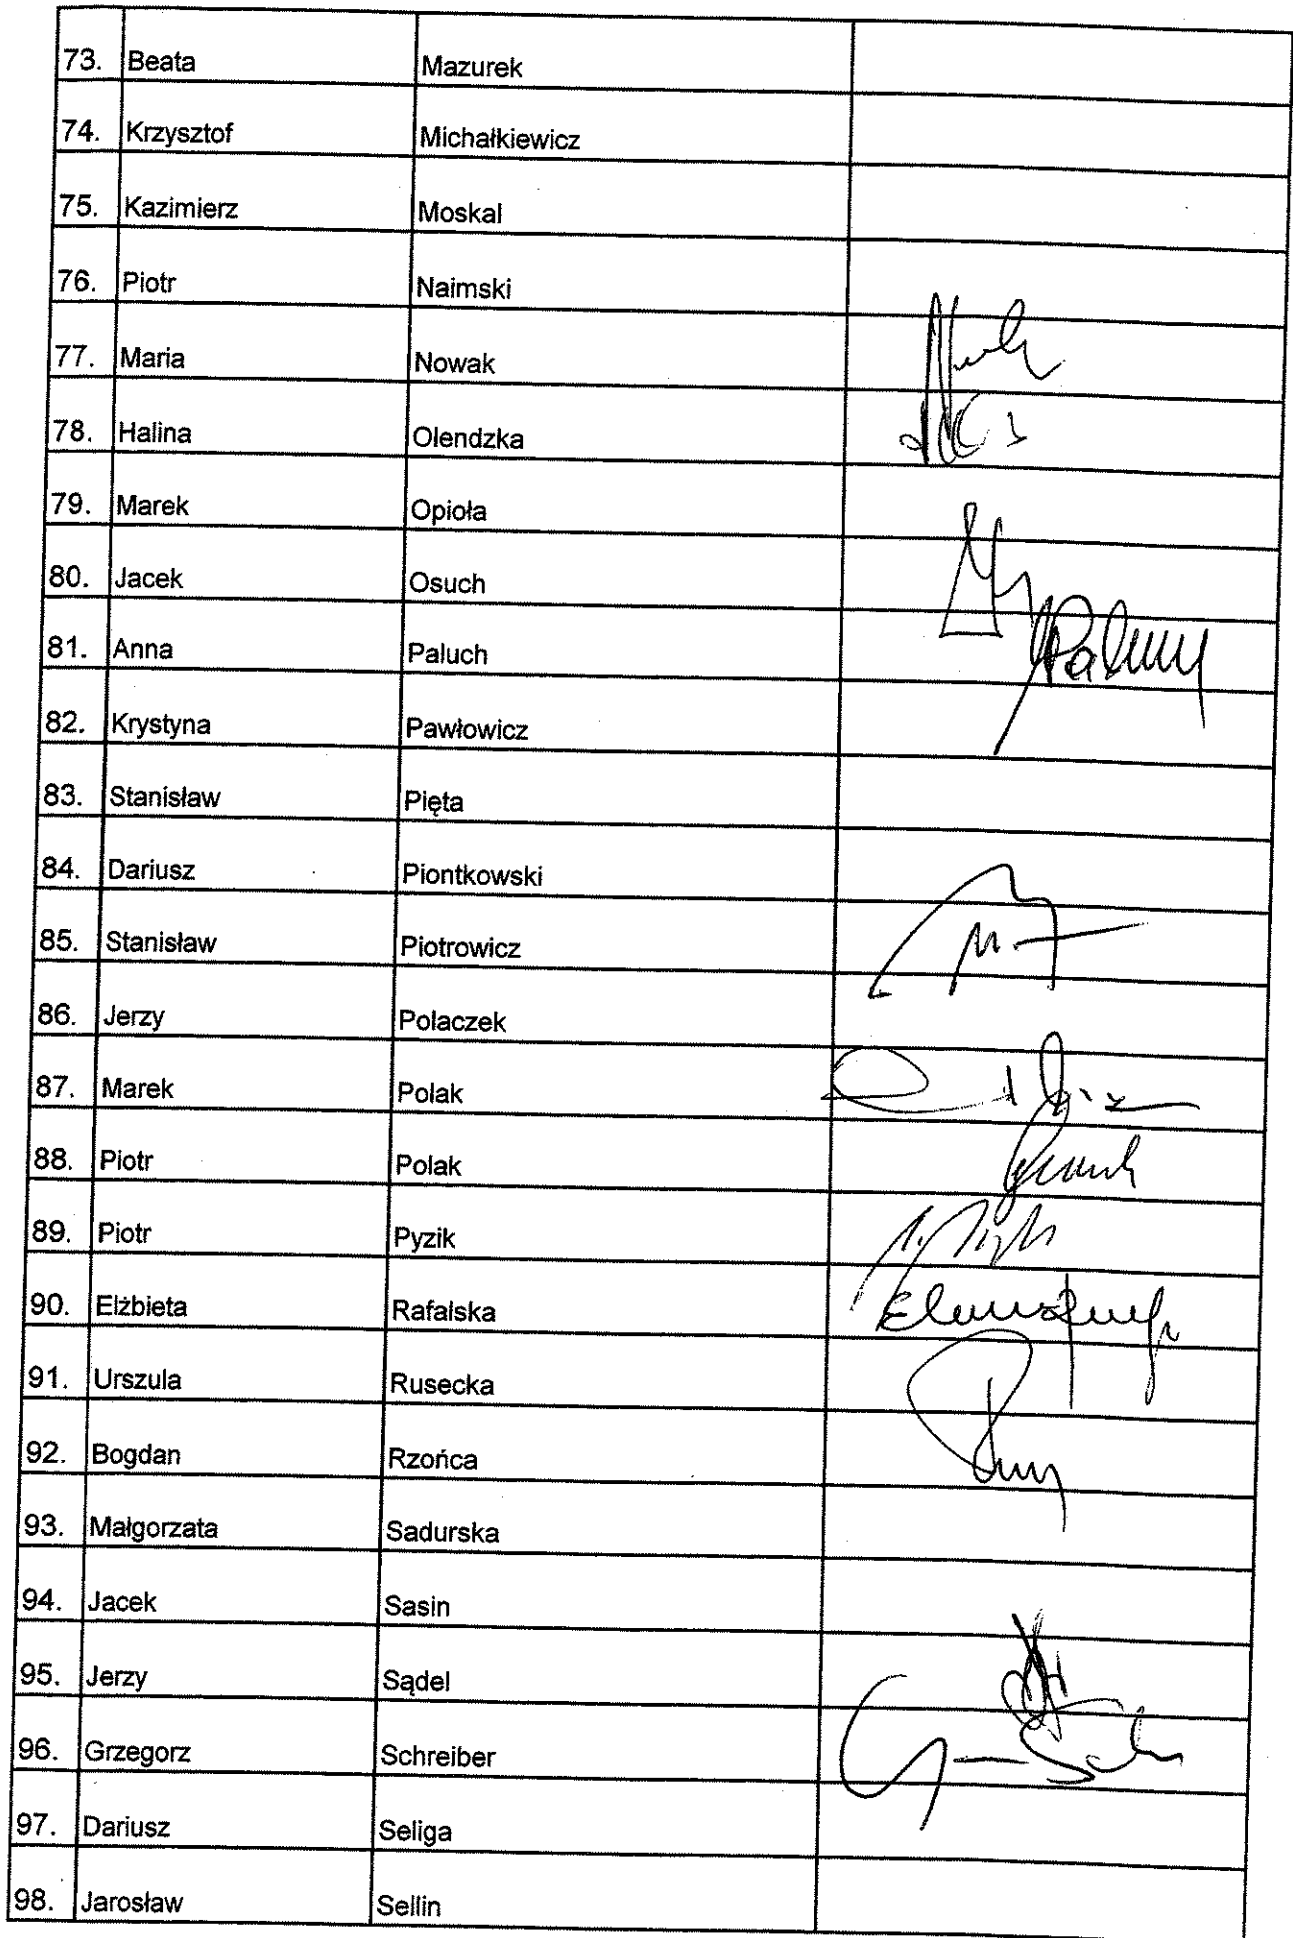 73. Beata Mazurek
74. Krzysztof Michałkiewicz
75. Kazimierz Moskal
76. Piotr Naimski
77. Maria Nowak
78. Halina Olendzka
79. Marek Opioła
80. Jacek Osuch
81. Anna Paluch
82. Krystyna Pawłowicz
83. Stanisław Pięta
84. Dariusz Piontkowski
85. Stanisław Piotrowicz
86. Jerzy Polaczek
87. Marek Polak
88. Piotr Polak
89. Piotr Pyzik
90. Elżbieta Rafalska
91. Urszula Rusecka
92. Bogdan Rzońca
93. Małgorzata Sadurska
94. Jacek Sasin
95. Jerzy Sądel
96. Grzegorz Schreiber
97. Dariusz Seliga
98. Jarosław Sellin